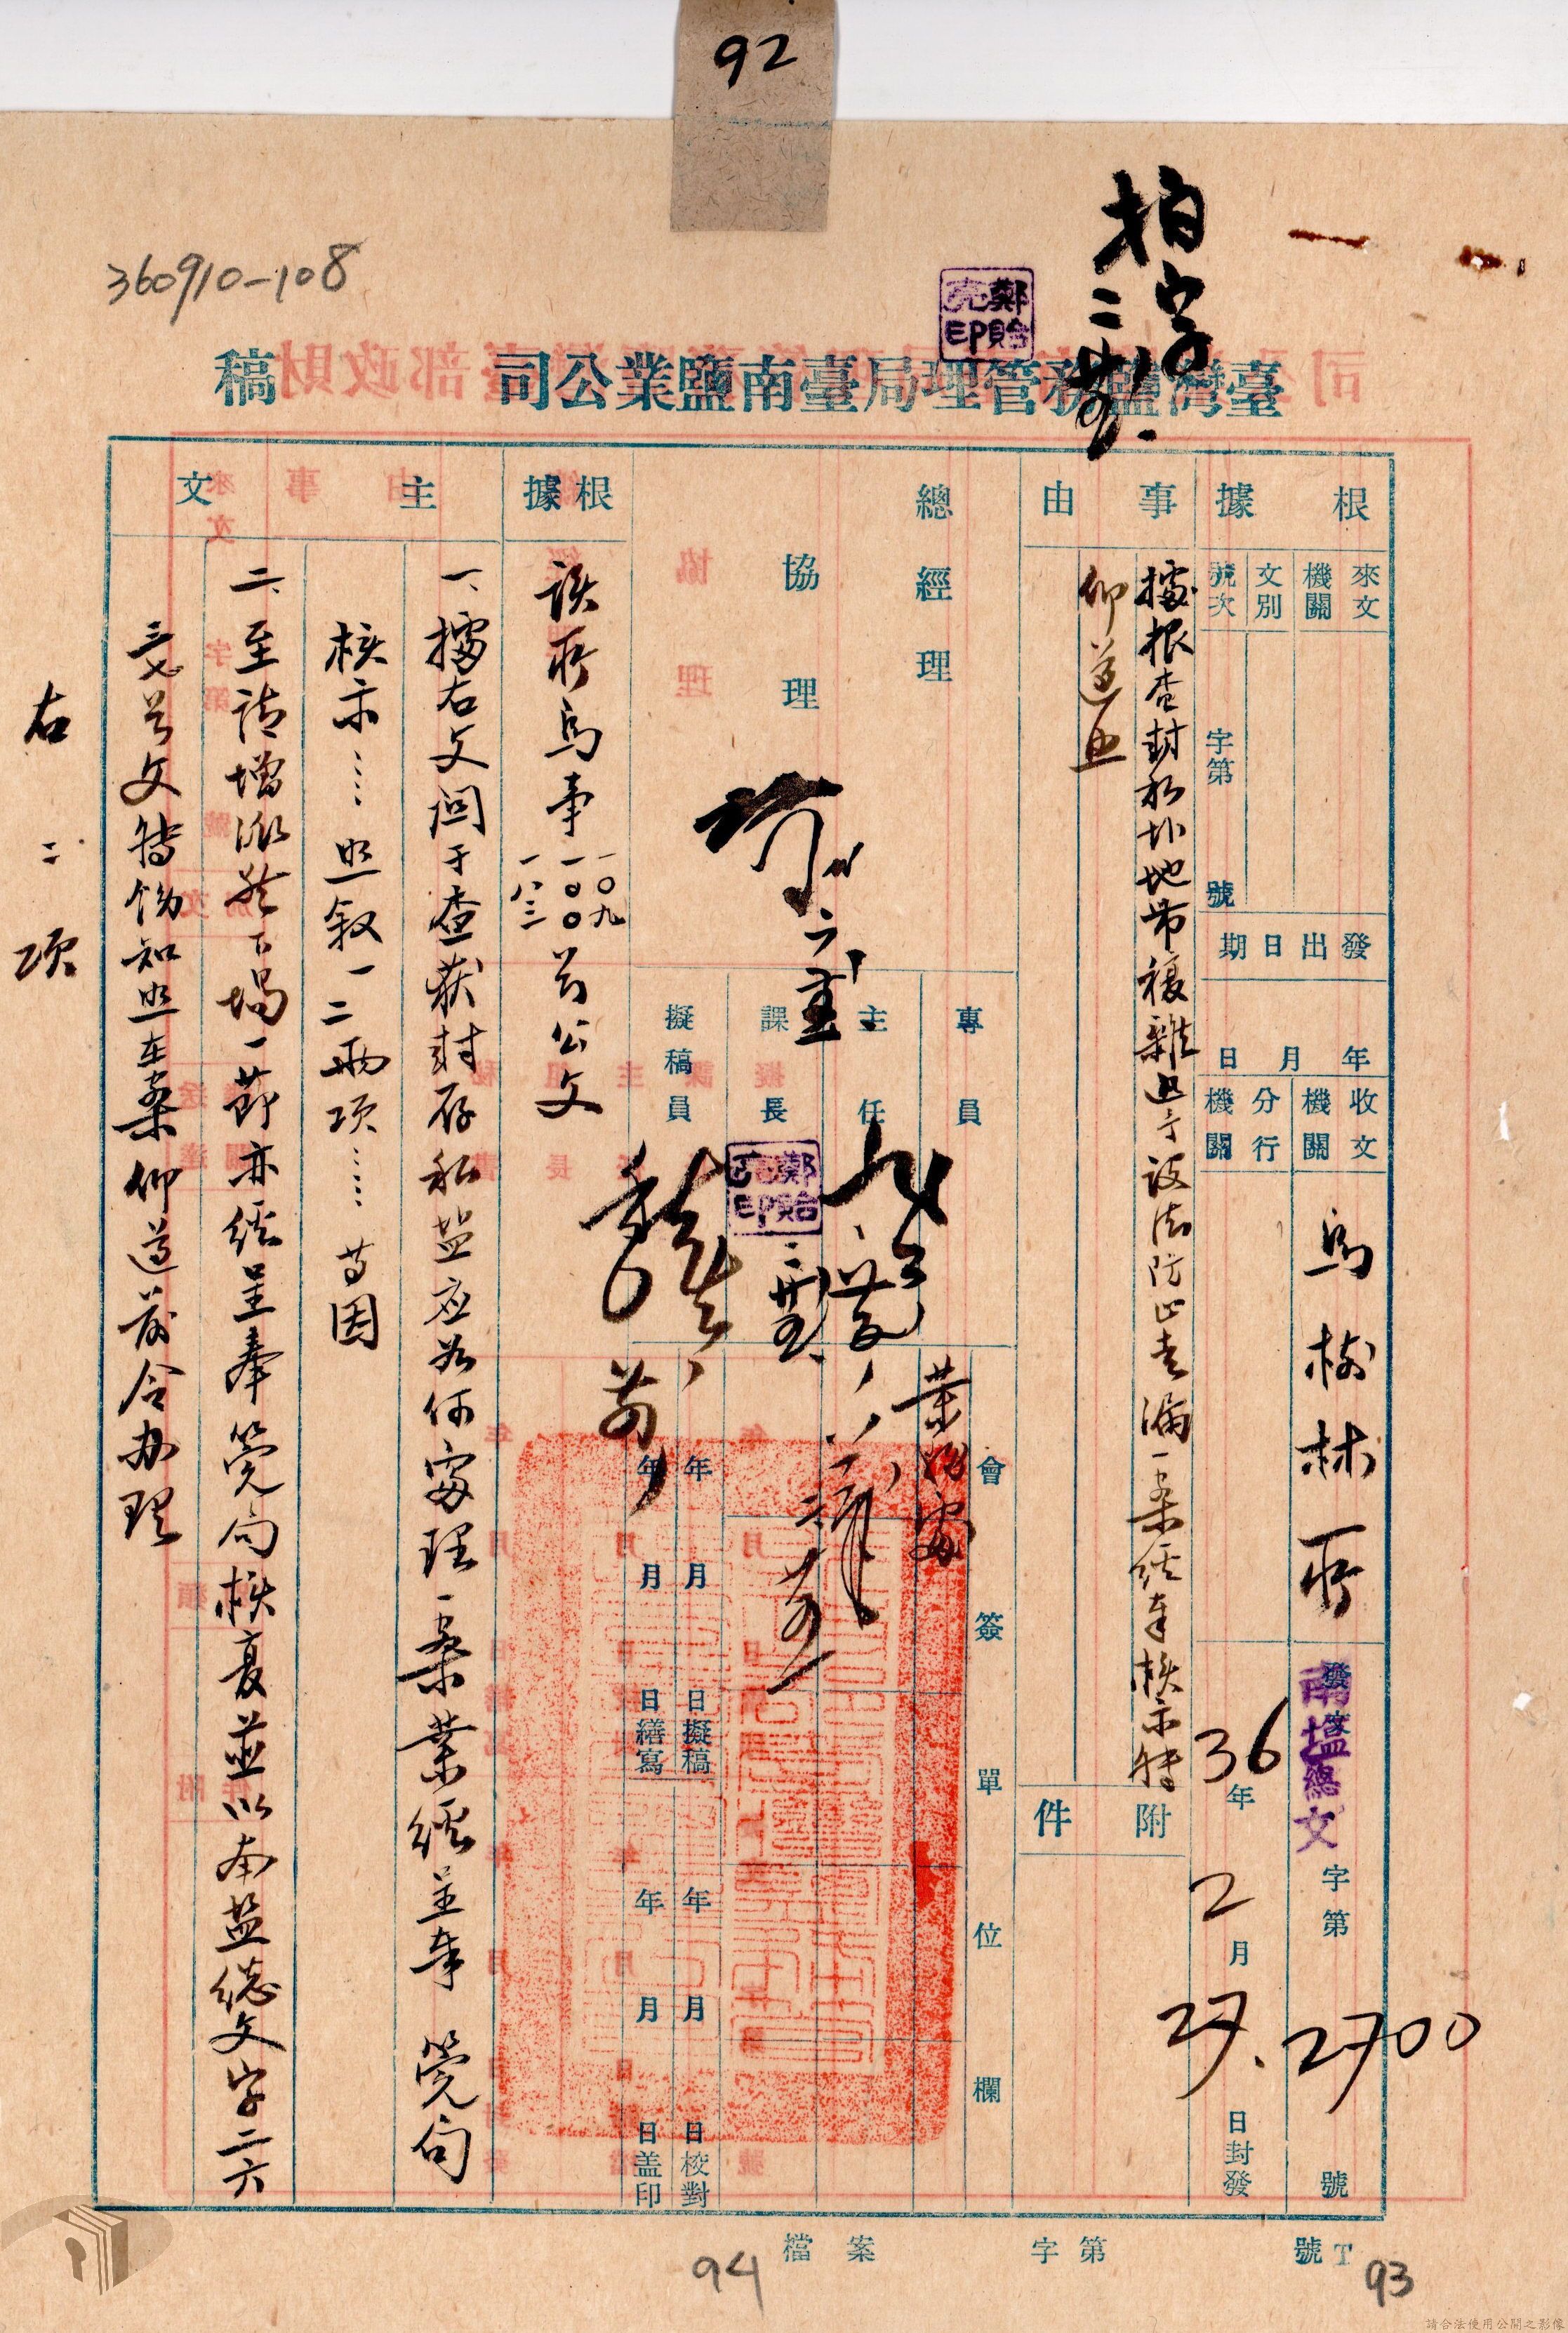 92
360910-108
鄭貽亮印
臺灣鹽務管理局臺南鹽業公司 稿
根據
來文機關
文別
號次
字第 號
發出日期
年 月 日
收文機關
烏樹林所
分行機關
南塩總文
發文字第2700號
36年2月27日封發
事由
據報查封私圤地帶複雜迅予設法防止走漏一案經奉核示特
仰遵照
附件
總經理
協理
專員
主任
課長
擬稿員
鄭貽亮印
會簽單位欄
年 月 日擬稿
年 月 日繕寫
年 月 日校對
年 月 日盖印
根據
該所烏辛一〇九 一一〇〇 一八三号公文
主文
一、據右文関于查获封存私盐应如何處理一案業經呈奉 管局
核示……照叙一二兩項……等因
二、至請增派於下場一節亦經呈奉管局核復並以南盐總文字二六
号文特飭知照在案仰遵前令办理
右二項
檔案 字第 號
94
93
請合法使用公開之影像